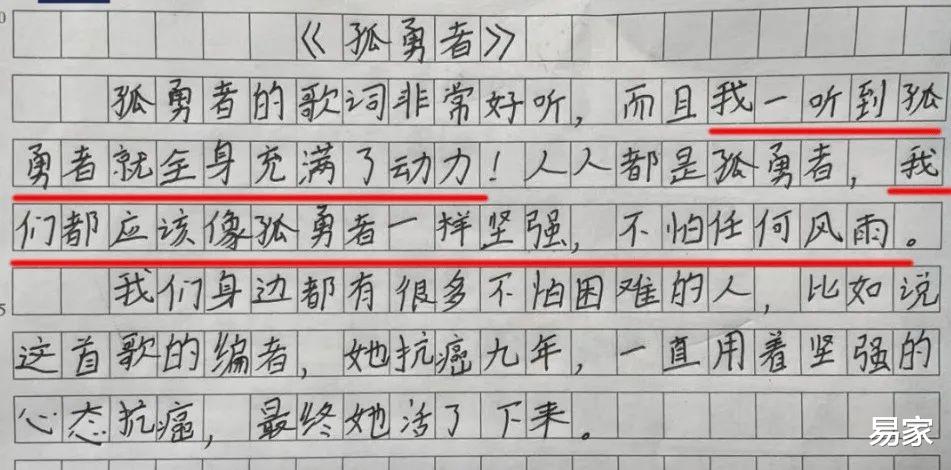 0
《孤勇者》
孤勇者的歌词非常好听，而且我一听到孤
勇者就全身充满了动力！人人都是孤勇者，我
们都应该像孤勇者一样坚强，不怕任何风雨。
我们身边都有很多不怕困难的人，比如说
5
这首歌的编者，她抗癌九年，一直用着坚强的
心态抗癌，最终她活了下来。
易家